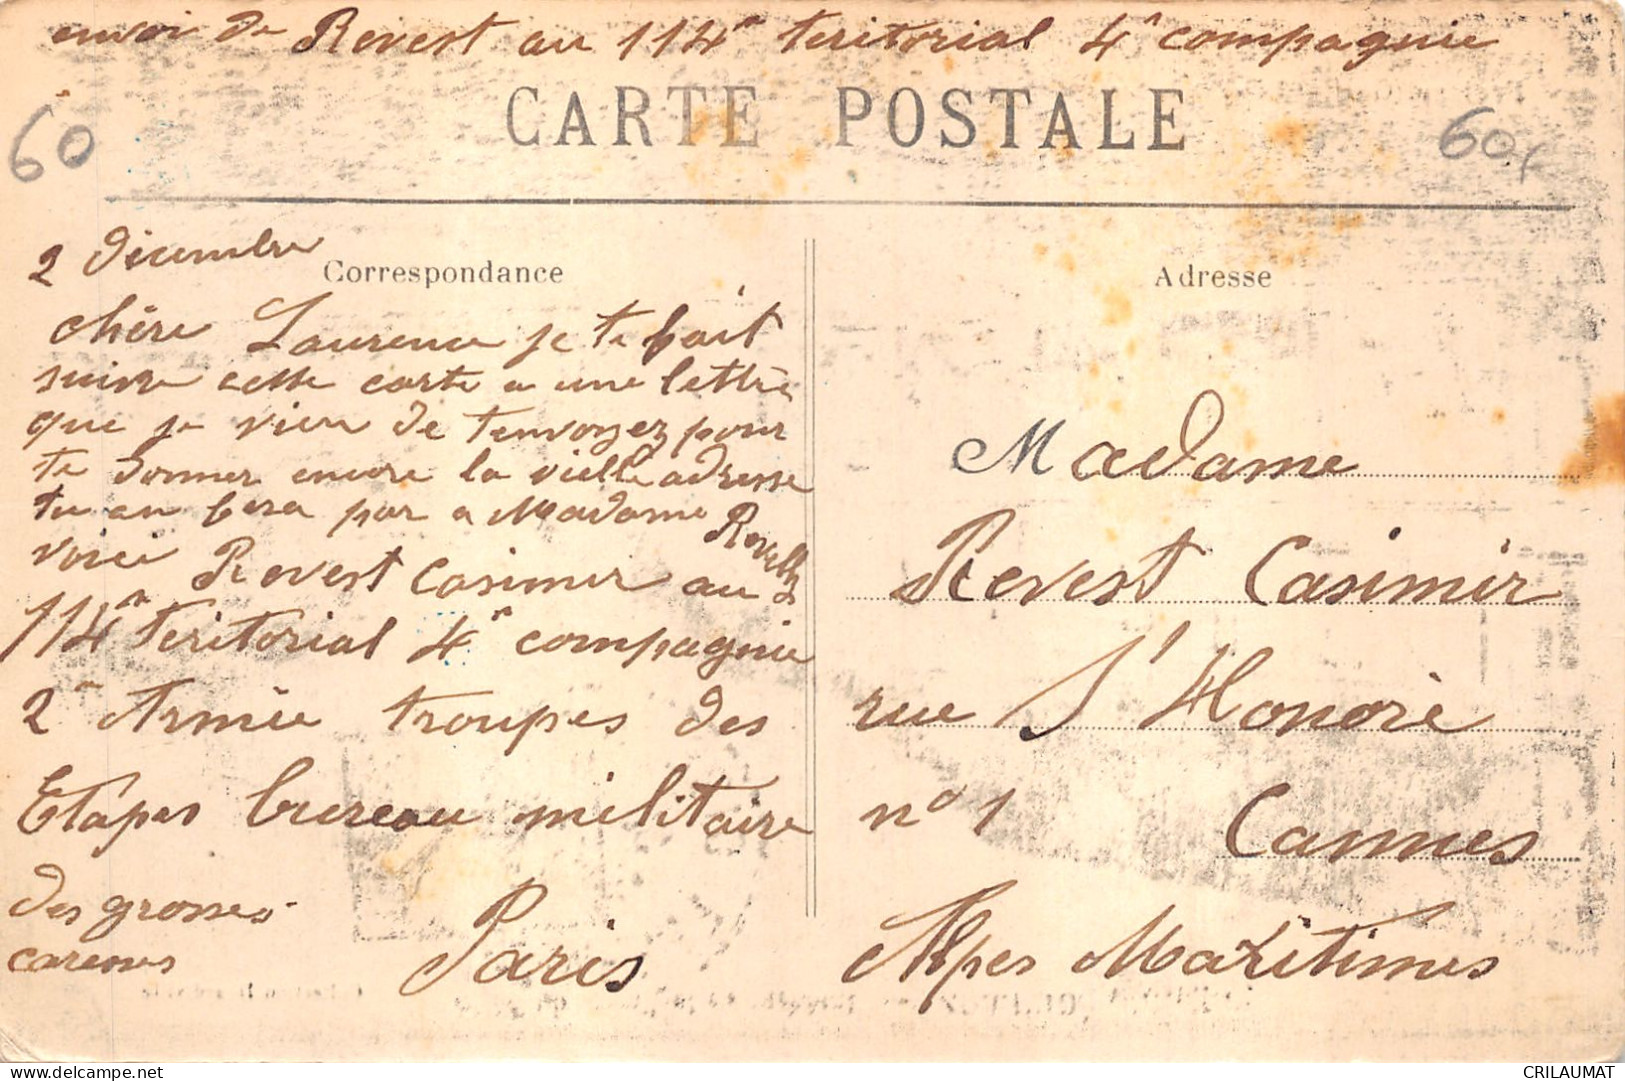 envoi de Revest au 114e teritorial 4e compagnie
CARTE POSTALE
60
60
2 décembre
Correspondance
chère Laurence je te fait
suivre cette carte a une lettre
que je vien de tenvoyez pour
te donner encore la vielle adresse
tu an fera par a Madame
voici Revest Casimir au
114e teritorial 4e compagnie
2e Armée troupes des
Etapes bureau militaire
des grosses
Paris
Adresse
Madame
Revest Casimir
rue St Honoré
no 1 Cannes
Alpes Maritimes
CRILAUMAT